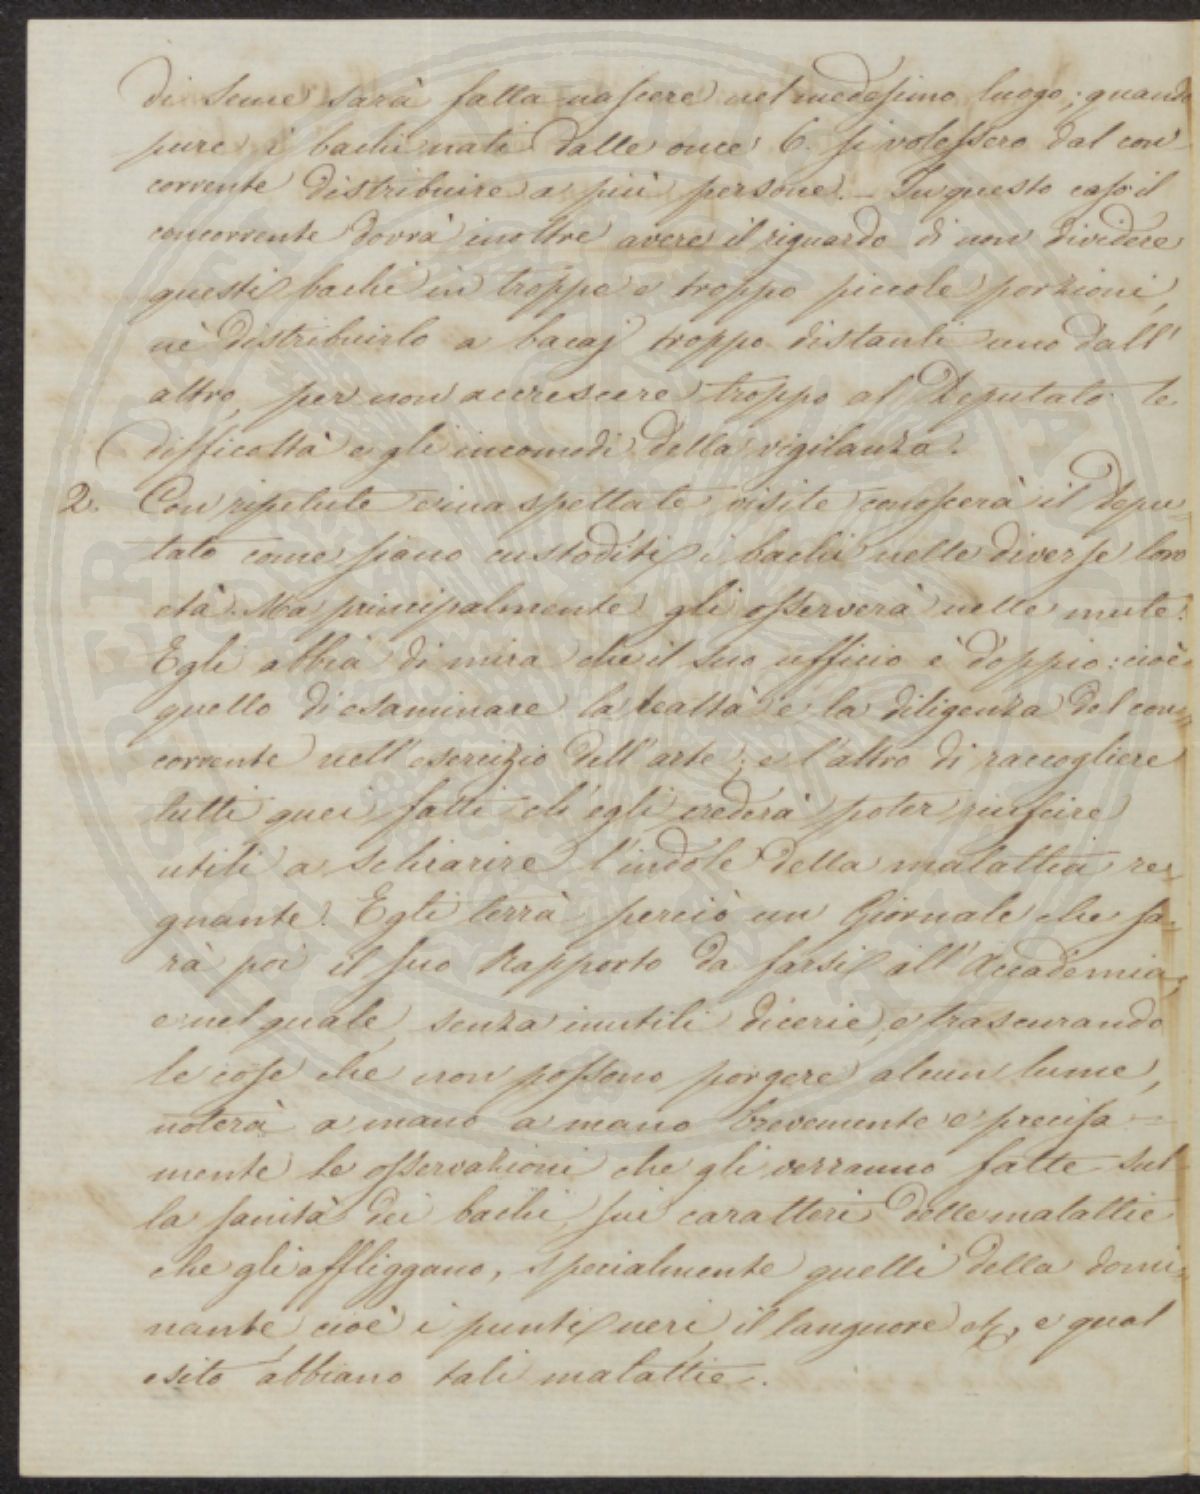 di seme sarà fatta nascere nel medesimo luogo; quando
pure i bachi nati dalle once 6. si volessero dal con-
corrente distribuire a più persone. - In questo caso il
concorrente dovrà inoltre avere il riguardo di non dividere
questi bachi in troppe e troppo piccole porzioni,
nè distribuirlo a bacaj troppo distanti uno dall'
altro, per non accrescere troppo al Deputato le
difficoltà e gli incomodi della vigilanza.
2. Con ripetute e inaspettate visite conoscerà il Depu-
tato come siano custoditi i bachi nelle diverse loro
età. Ma principalmente gli osserverà nelle mute.
Egli abbia di mira che il suo ufficio è doppio: cioè
quello di esaminare la lealtà e la diligenza del con-
corrente nell'esercizio dell'arte; e l'altro di raccogliere
tutti quei fatti ch'egli crederà poter riuscire
utili a schiarire l'indole della malattia re-
gnante. Egli terrà perciò un Giornale che sa-
rà poi il suo Rapporto da farsi all'Accademia;
e nel quale, senza inutili dicerie, e trascurando
le cose che non possono porgere alcun lume,
noterà a mano a mano brevemente e precisa-
mente le osservazioni che gli verranno fatte sul-
la sanità dei bachi, sui caratteri delle malattie
che gli affliggano, specialmente quelli della domi-
nante, cioè i punti neri, il languore etc, e qual
esito abbiano tali malattie.